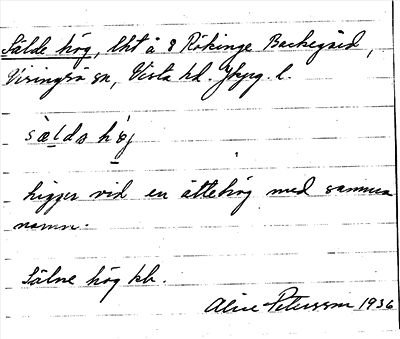 Sälde hög, lht å 8 Rökinge Backegård,
Visingsö sn, Vista hd. Jkpg. l.
sæ̱ldə hö̱g
ligger vid en ättehög med samma
namn.
Sälne hög kb.
Aline Petersson 1936